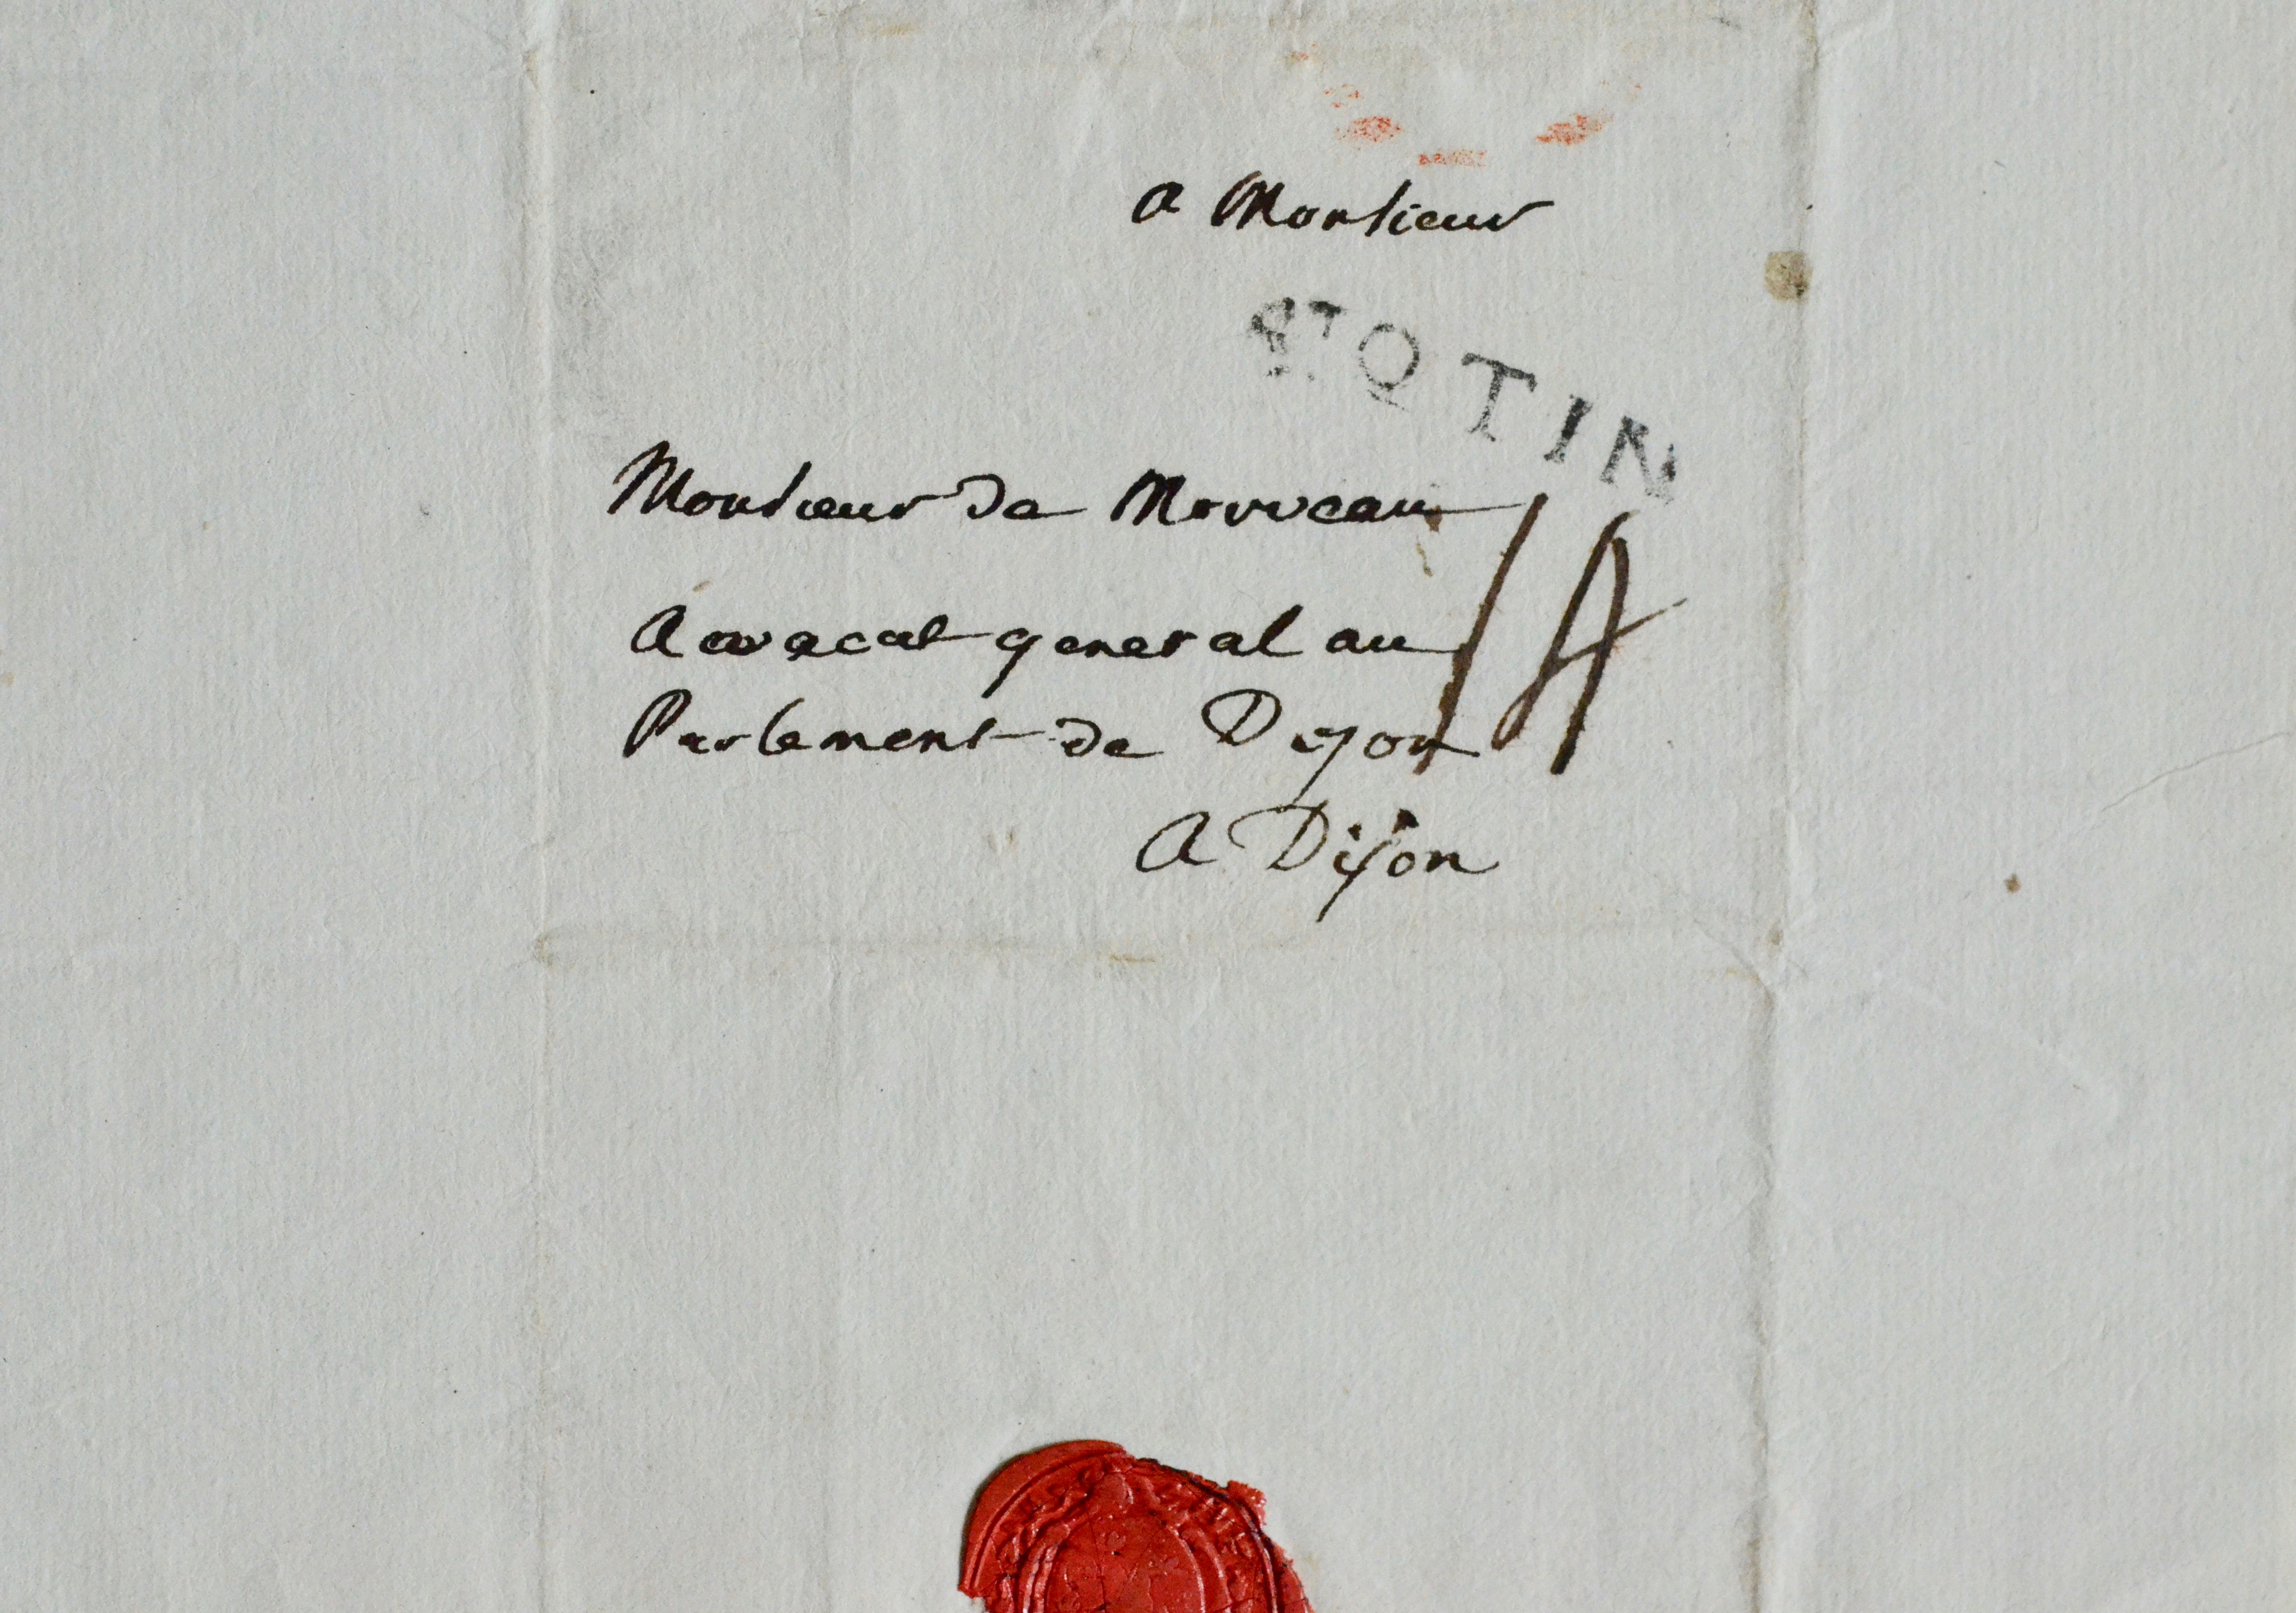 A Monsieur
Sᵀ QTIN
Monsieur de Morveau
14
Avacat general au
Parlement de Dijon
A Dijon